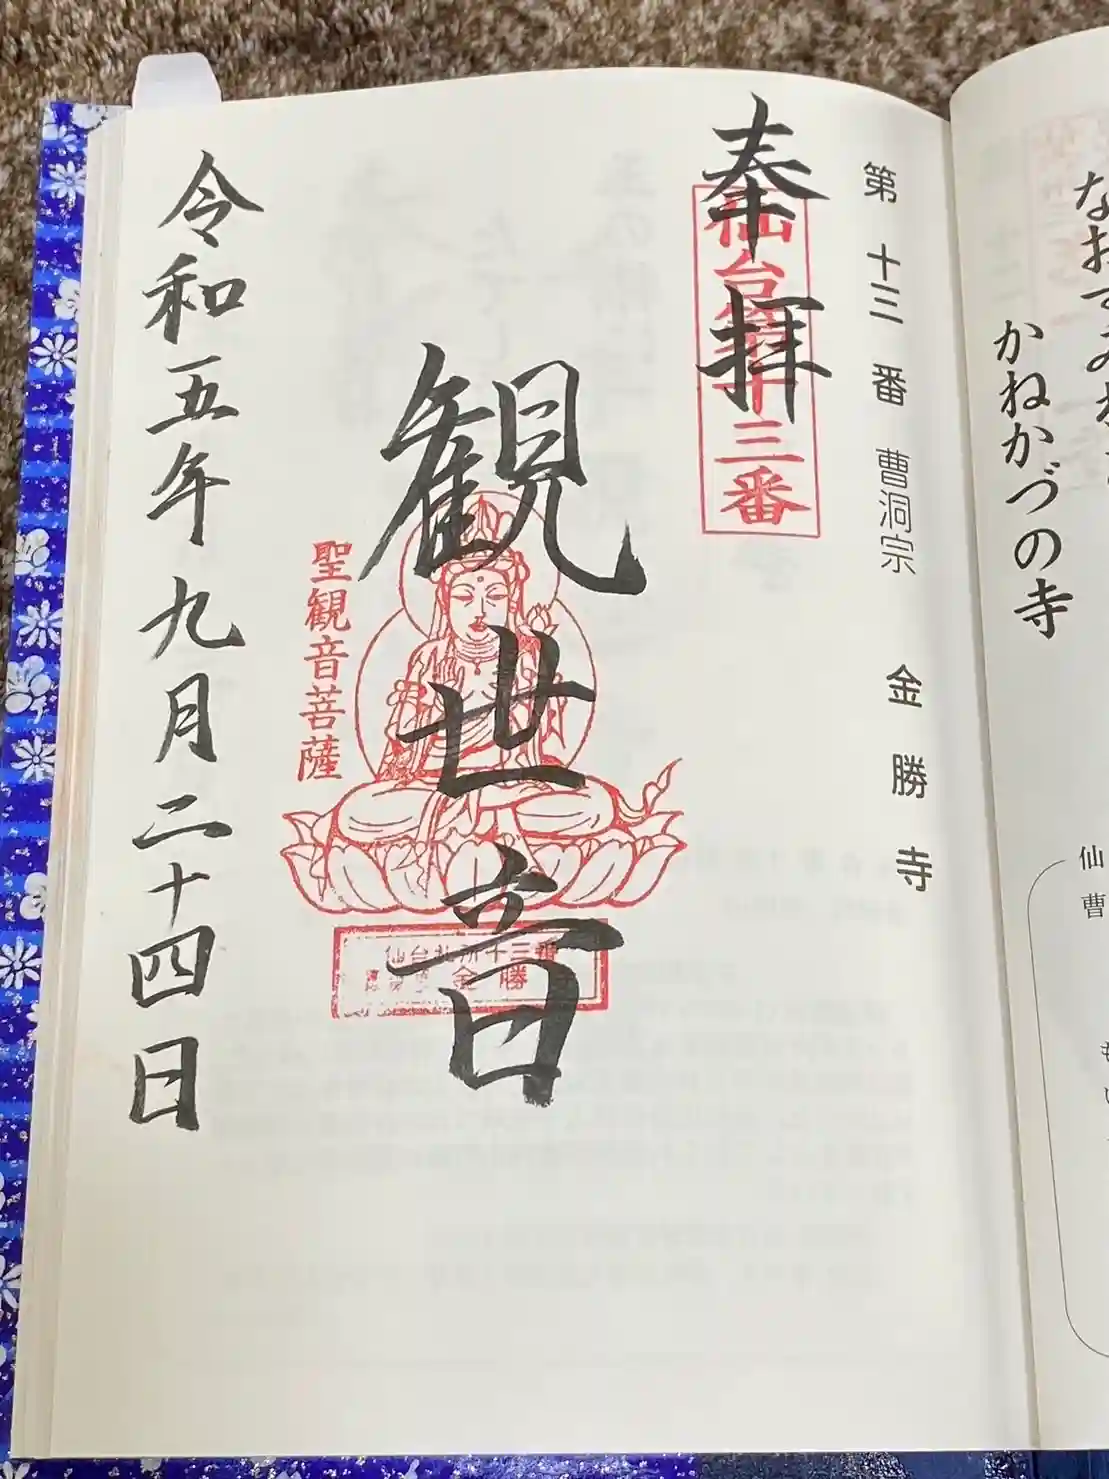 かねかづの寺
仙
曹
第十三番 曹洞宗 金勝寺
奉拝
仙台第十三番
観世音
聖観音菩薩
仙台札所十三番
金勝
令和五年九月二十四日